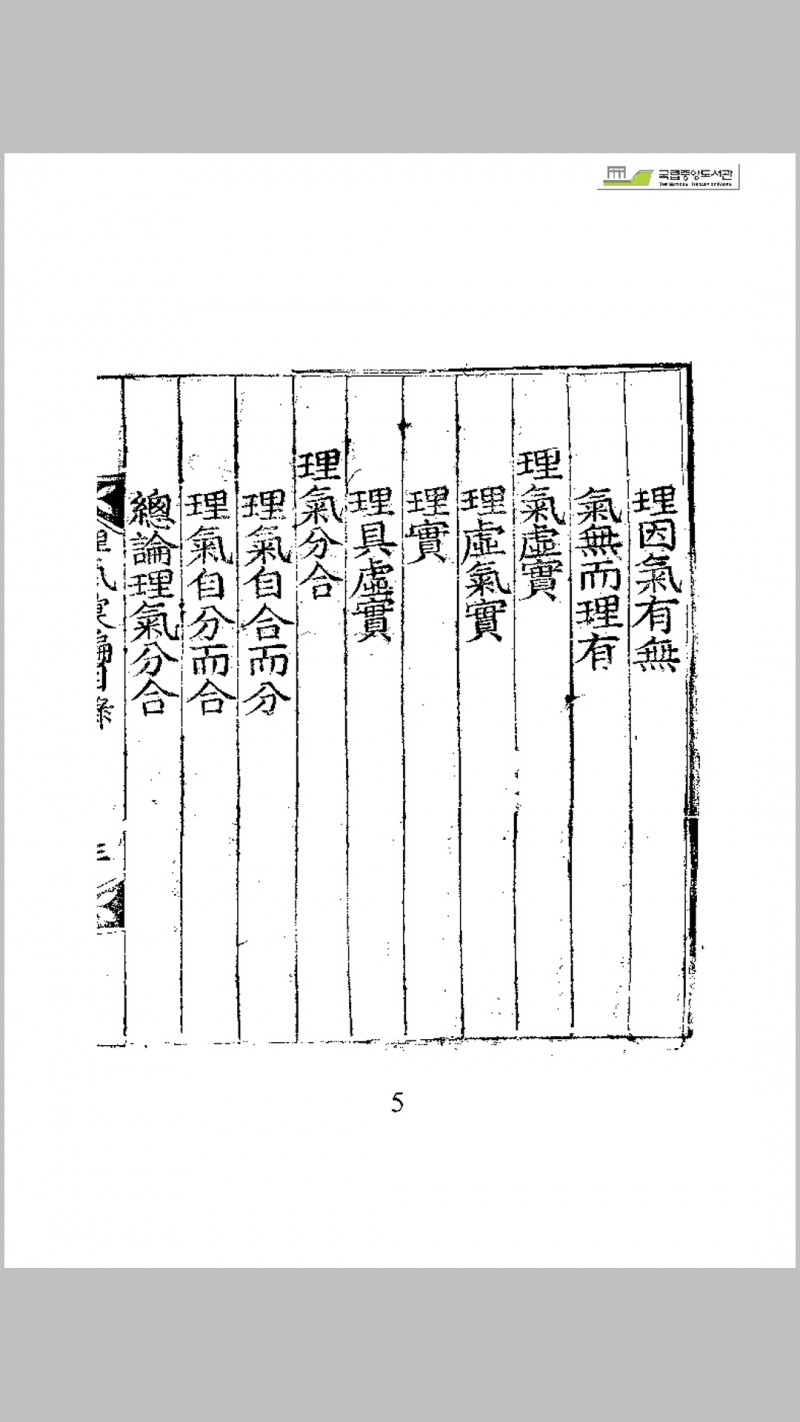 국립중앙도서관
THE NATIONAL LIBRARY OF KOREA
理因氣有無
氣無而理有
理氣虛實
理虛氣實
理實
理具虛實
理氣分合
理氣自合而分
理氣自分而合
總論理氣分合
目錄
三
5